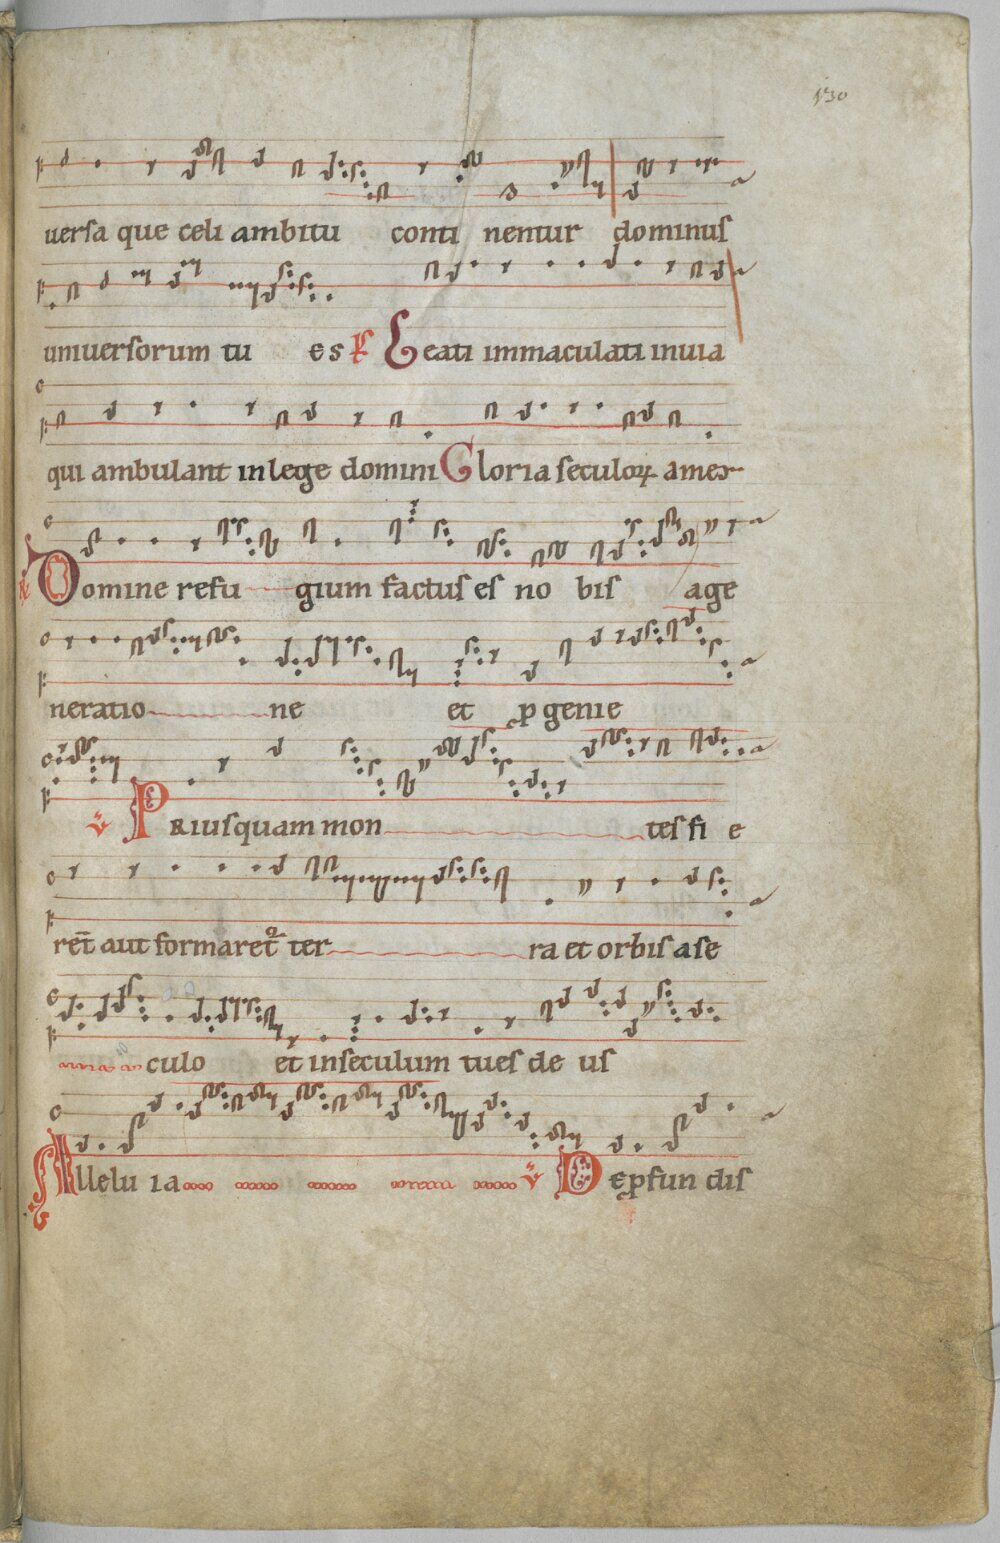 130
uersa que celi ambitu conti nentur dominus
uniuersorum tu es ps Beati immaculati in uia
qui ambulant in lege domini Gloria seculoꝝ amen
Domine refu gium factus es no bis age
neratio ne et ꝓ genie
℣ Priusquam mon tes fi e
rēt aut formaret᷑ ter ra et orbis a se
culo et in seculum tu es de us
Allelu ia ℣ De ꝓfun dis